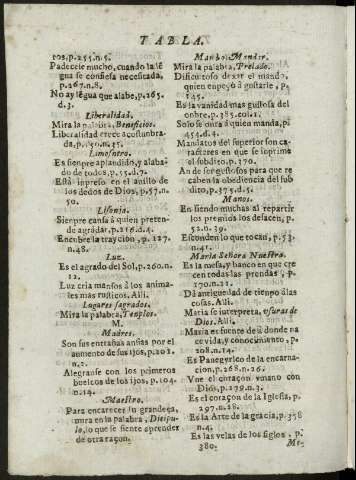 TABLA.
ros, p.255.n.5.
Padecese mucho, cuando la lē
gua se confiesa necesitada,
p.267.n.8.
No ay lēgua que alabe, p.265.
d.3.
Liberalidad.
Mira la palabra, Beneficios.
Liberalidad crece acostunbra-
da, p.150.n.35.
Limosnero.
Es sienpre aplaudido, y alaba-
do de todos, p.55.d.7.
Està inpreso en el anillo de
los dedos de Dios, p.57.n.
50.
Lisonja.
Sienpre cansa à quien preten-
de agradar, p.216.d.4.
Encubre la traycion, p.127.
n.48.
Luz.
Es el agrado del Sol, p.260.n.
12.
Luz cria mansos à los anima-
les mas rusticos, Alli.
Lugares sagrados.
Mira la palabra, Tenplos.
M.
Madres.
Son sus entrañas ansias por el
aumento de sus ijos, p.202.
n.2.
Alegranse con los primeros
buelcos de los ijos, p.104.
n.14.
Maestro.
Para encarecer su grandeça,
mira en la palabra, Dicipu-
lo, lo que se siente aprender
de otra raçon.
Mando: Mandar.
Mira la palabra, Prelado.
Dificultoso dexar el mando,
quien enpeçò à gustarle, p.
145.
Es la vanidad mas gustosa del
onbre, p.385.col.1.
Solo se mira à quien manda, p.
454.d.4.
Mandatos del superior son ca-
racteres en que se inprime
el subdito, p.370.
An de ser gustosos para que re
ciban la obediencia del sub
dito, p.375.d.5.
Manos.
En siendo muchas al repartir
los premios los desacen, p.
52.n.39.
Esconden lo que tocan, p.53.
n.41.
Maria Señora Nuestra.
Es la mesa, y banco en que cre
cen todas las prendas, p.
170.n.21.
Dà antiguedad de tienpo à las
cosas. Alli.
Maria se interpreta, usuras de
Dios. Alli.
Maria es fuente de ïl donde na
ce vida, y conocimiento, p.
208.n.14.
Es Panegyrico de la encarna-
cion, p.268.n.26.
Vne el coraçon vmano con
Dios, p.279.n.3.
Es el coraçon de la Iglesia, p.
297.n.28.
Es la Arte de la gracia, p.358
n.4.
Es las velas de los siglos, p.
380.
Me-